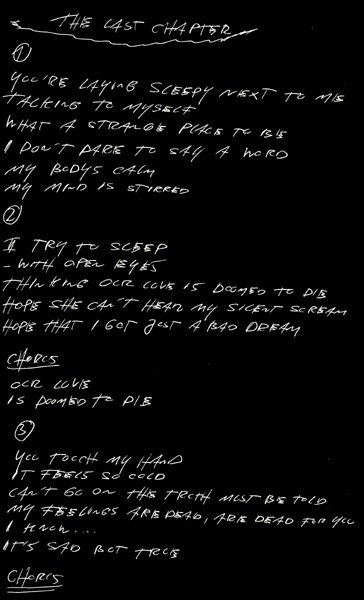 THE LAST CHAPTER
1
YOU'RE LAYING SLEEPY NEXT TO ME
TALKING TO MYSELF
WHAT A STRANGE PLACE TO BE
I DON'T DARE TO SAY A WORD
MY BODYS CALM
MY MIND IS STIRRED
2
I TRY TO SLEEP
- WITH OPEN EYES
THINKING OUR LOVE IS DOOMED TO DIE
HOPE SHE CAN'T HEAR MY SILENT SCREAM
HOPE THAT I GOT JUST A BAD DREAM
CHORUS
OUR LOVE
IS DOOMED TO DIE
3
YOU TOUCH MY HAND
IT FEELS SO COLD
CAN'T GO ON THE TRUTH MUST BE TOLD
MY FEELINGS ARE DEAD, ARE DEAD FOR YOU
I KNOW....
IT'S SAD BUT TRUE
CHORUS